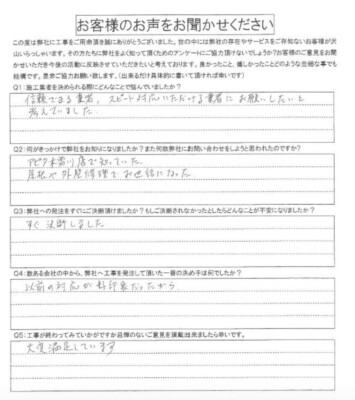 お客様のお声をお聞かせください
この度は弊社に工事をご用命頂き誠にありがとうございました。世の中には弊社の存在やサービスをご存知ないお客様が沢
山いらっしゃいます。その方たちに弊社をよく知って頂くためのアンケートにご協力頂けないでしょうか？お客様のご意見をお聞
かせいただき今後の活動に反映させていただきたいと考えております。良かったこと、嬉しかったことどのような些細な事でも
結構です。是非ご協力お願い致します。（出来るだけ具体的に書いて頂ければ幸いです）
Q1：施工業者を決められる際にどんなことで悩んでいましたか？
信頼できる業者、スピード対応いただける業者にお願いしたいと
考えていました。
Q2：何がきっかけで弊社をお知りになりましたか？また何故弊社にお問い合わせをしようと思われたのですか？
店で知っていた。
屋根や外壁修理でお世話になった。
Q3：弊社への発注をすぐにご決断頂けましたか？もしご決断されなかったとしたらどんなことが不安になりましたか？
すぐ決断しました
Q4：数ある会社の中から、弊社へ工事を発注して頂いた一番の決め手は何でしたか？
以前の対応が好印象だったから。
Q5：工事が終わってみていかがですか忌憚のないご意見を頂戴出来ましたら幸いです。
大変満足しています